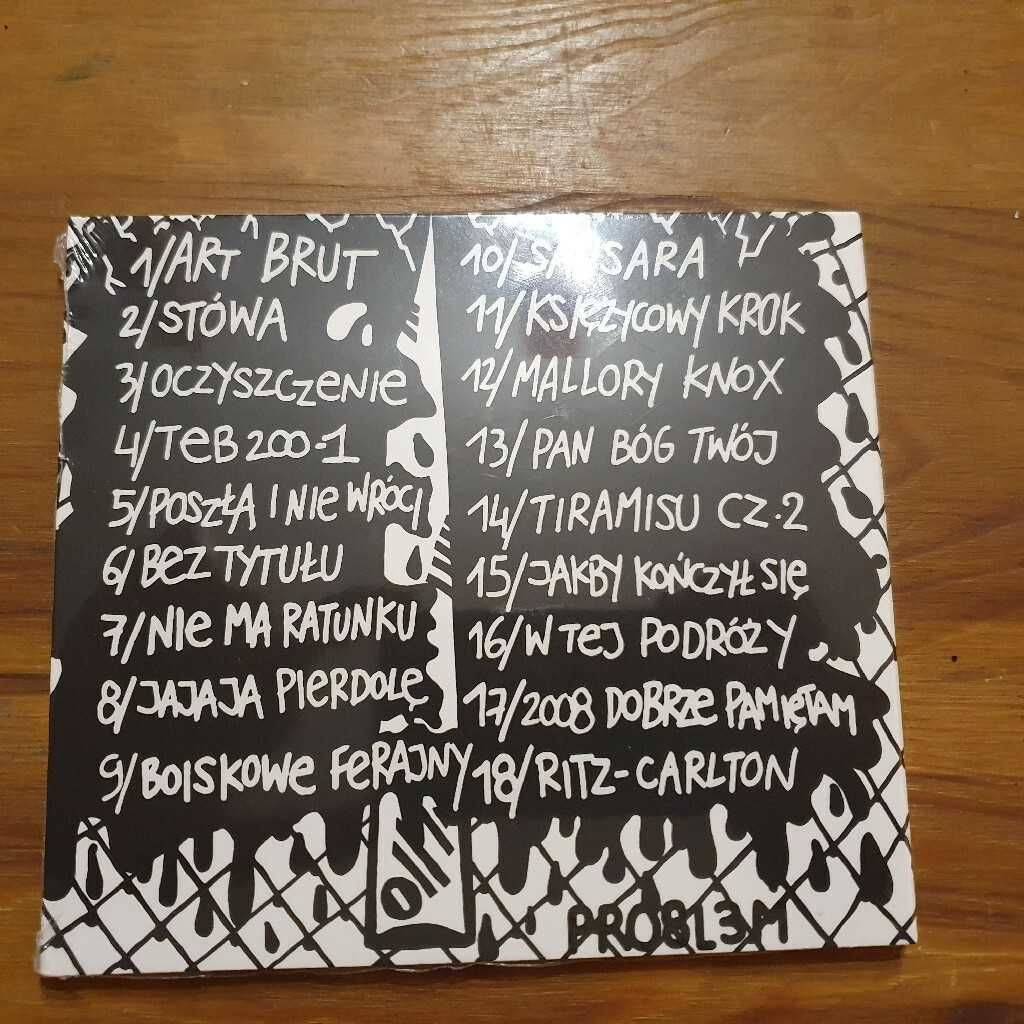 1/ART BRUT
2/STÓWA
3/OCZYSZCZENIE
4/TEB 200-1
5/POSZŁA I NIE WRÓCI
6/BEZ TYTUŁU
7/NIE MA RATUNKU
8/JAJAJA PIERDOLĘ
9/BOISKOWE FERAJNY
10/SAMSARA
11/KSIĘŻYCOWY KROK
12/MALLORY KNOX
13/PAN BÓG TWÓJ
14/TIRAMISU CZ.2
15/JAKBY KOŃCZYŁ SIĘ
16/W TEJ PODRÓŻY
17/2008 DOBRZE PAMIĘTAM
18/RITZ-CARLTON
PRO8L3M